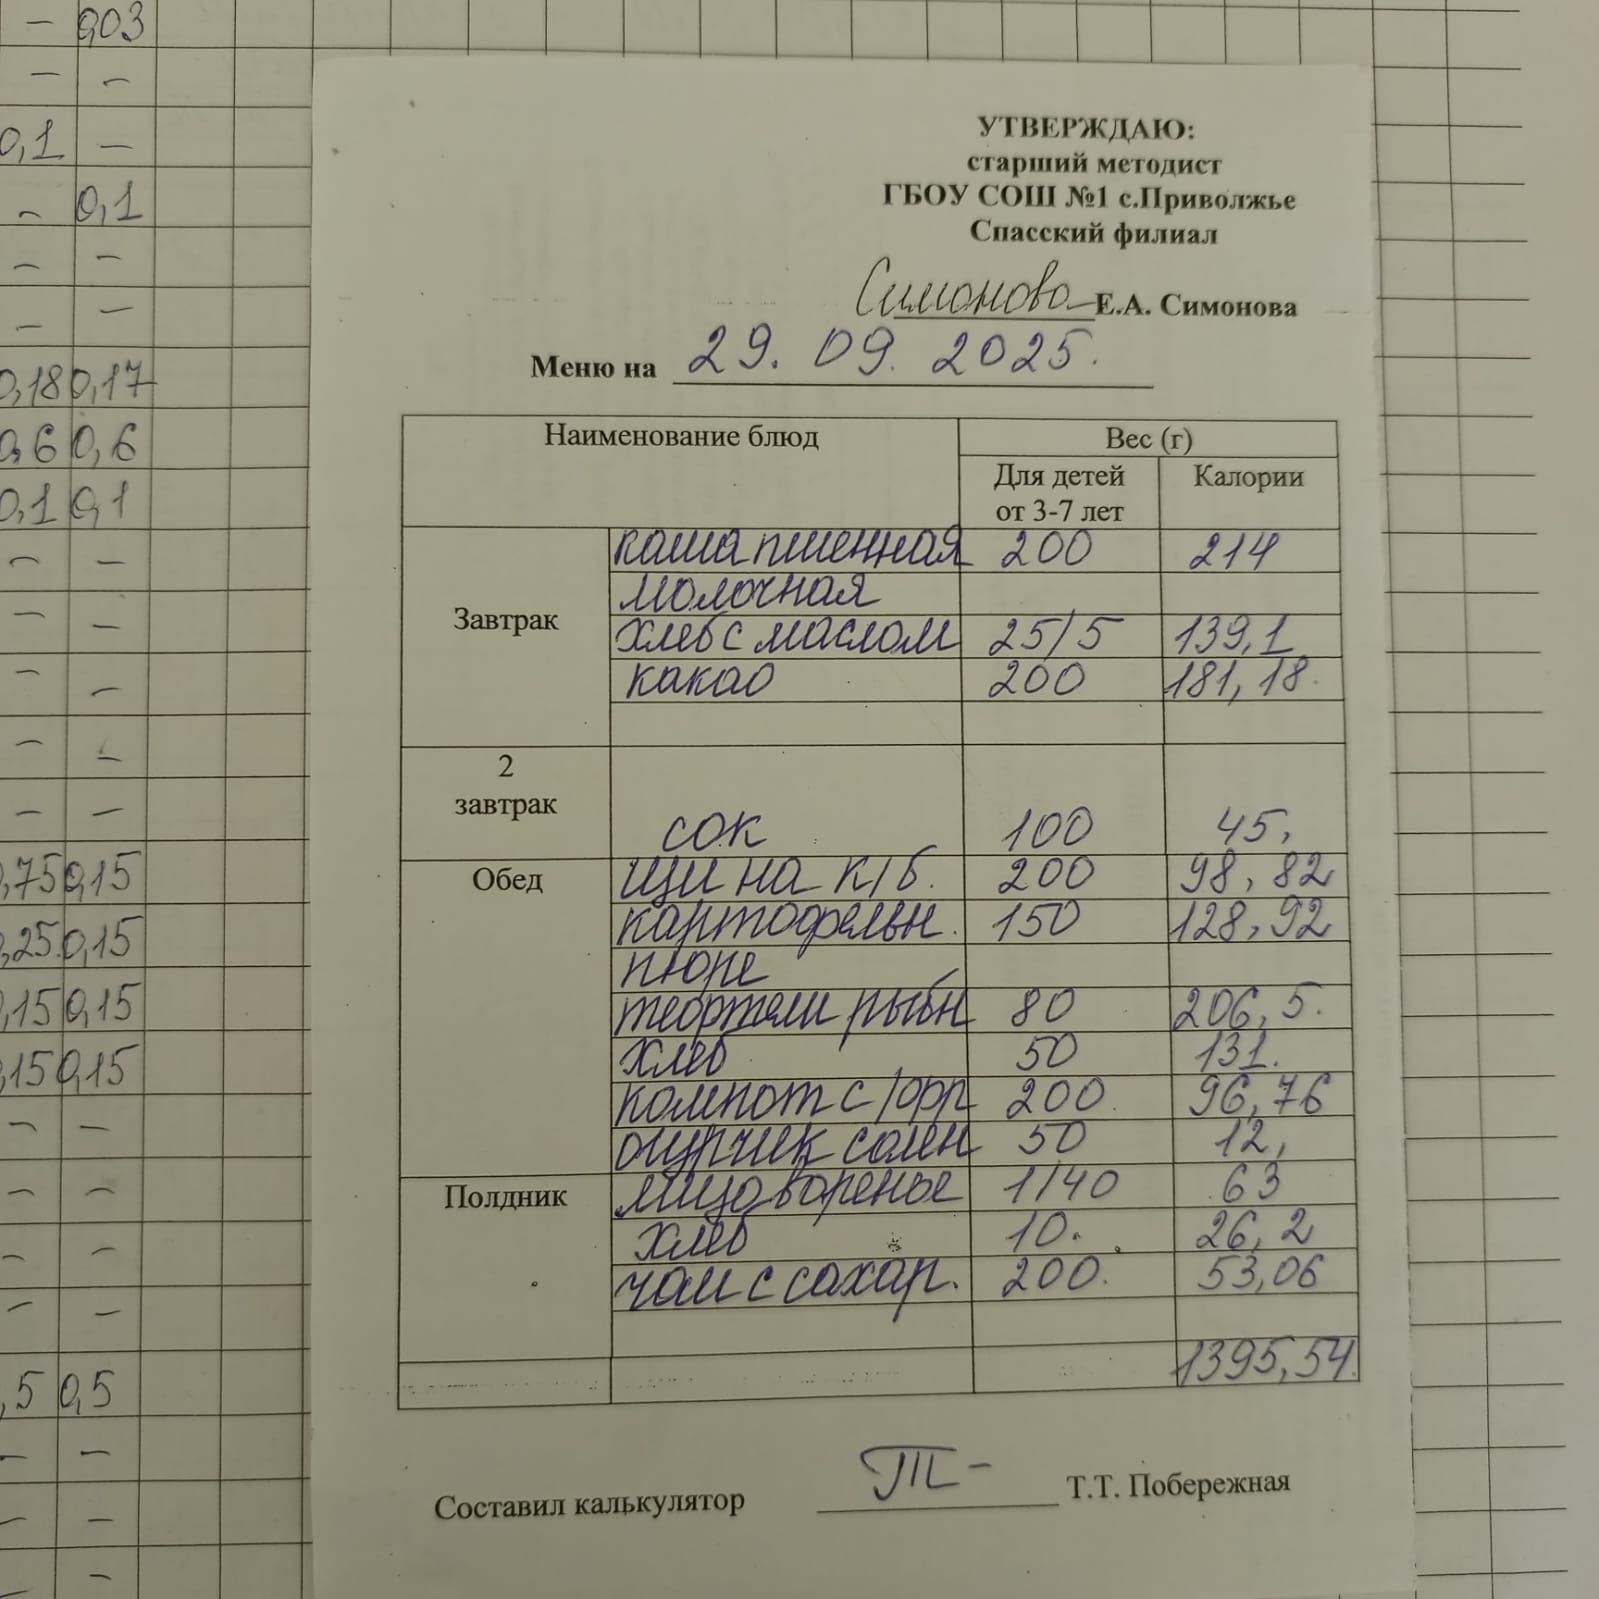 УТВЕРЖДАЮ:
старший методист
ГБОУ СОШ №1 с.Приволжье
Спасский филиал
Симонова Е.А. Симонова
Меню на 29.09.2025.
Наименование блюд Вес (г)
Для детей от 3-7 лет Калории
Завтрак
каша пшенная 200 214
молочная
хлеб с маслом 25/5 139,1
какао 200 181,18.
2 завтрак
сок 100 45,
Обед
щи на к/б. 200 98,82
картофельн. 150 128,92
пюре
тефтели рыбн 80 206,5.
хлеб 50 131.
компот с/фр 200. 96,76
огурчик солен 50 12,
Полдник
яйцо варенье 1/40 63
хлеб 10. 26,2
чай с сахар. 200. 53,06
1395,54.
Составил калькулятор Т.Т. Побережная
- 0,03
- -
0,1 -
- 0,1
- -
- -
0,18 0,17
0,6 0,6
0,1 0,1
- -
- -
- -
- -
- -
,75 0,15
,25 0,15
,15 0,15
,15 0,15
- -
- -
- -
- -
,5 0,5
- -
- -
- -